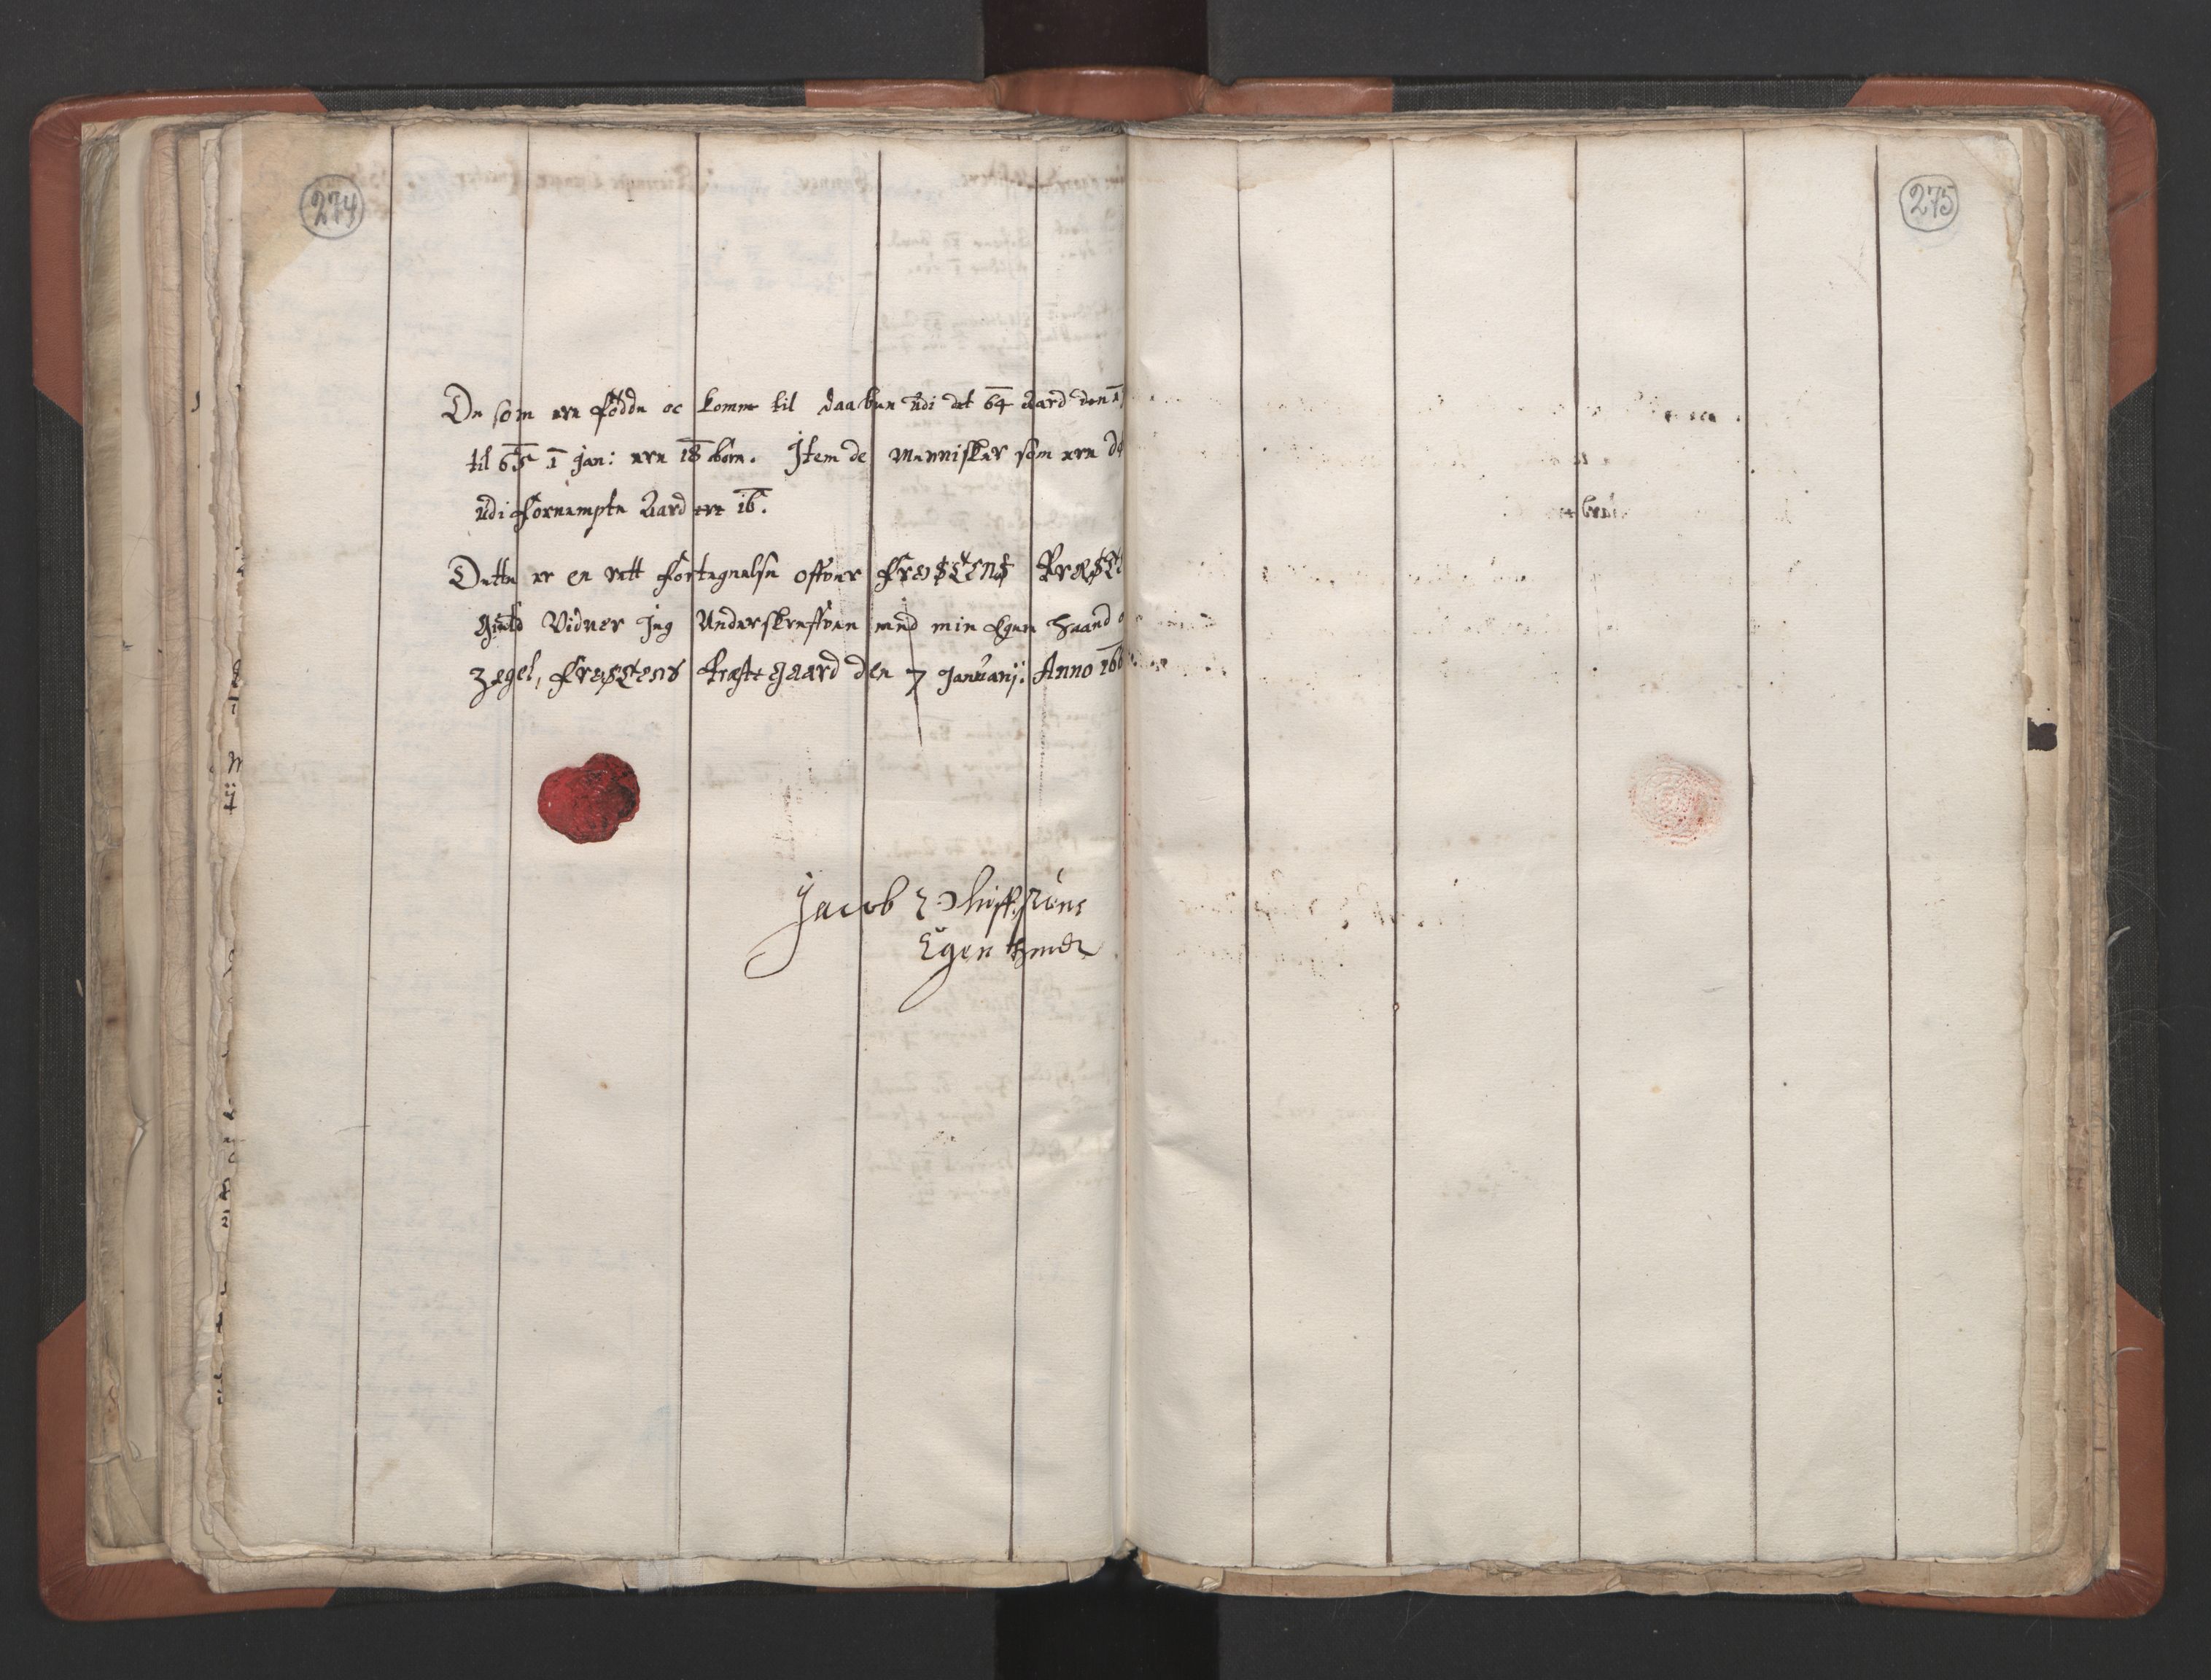 274
275
De som ere födde oc komne til daaben udi det 64 Aard den 1
til 65 1 Jan: ere 18 børn. Item de Mennisker som ere dø
udi fornempte Aard ere 16.
Dette er en rett fortegnelse offuer Frostens Præste
gield Vidner Jeg Underskreffuen med min Egen Haand o
Zegel, Frostens Præstegaard den 7 Januarij: Anno 166
Jacob
Egen Hand